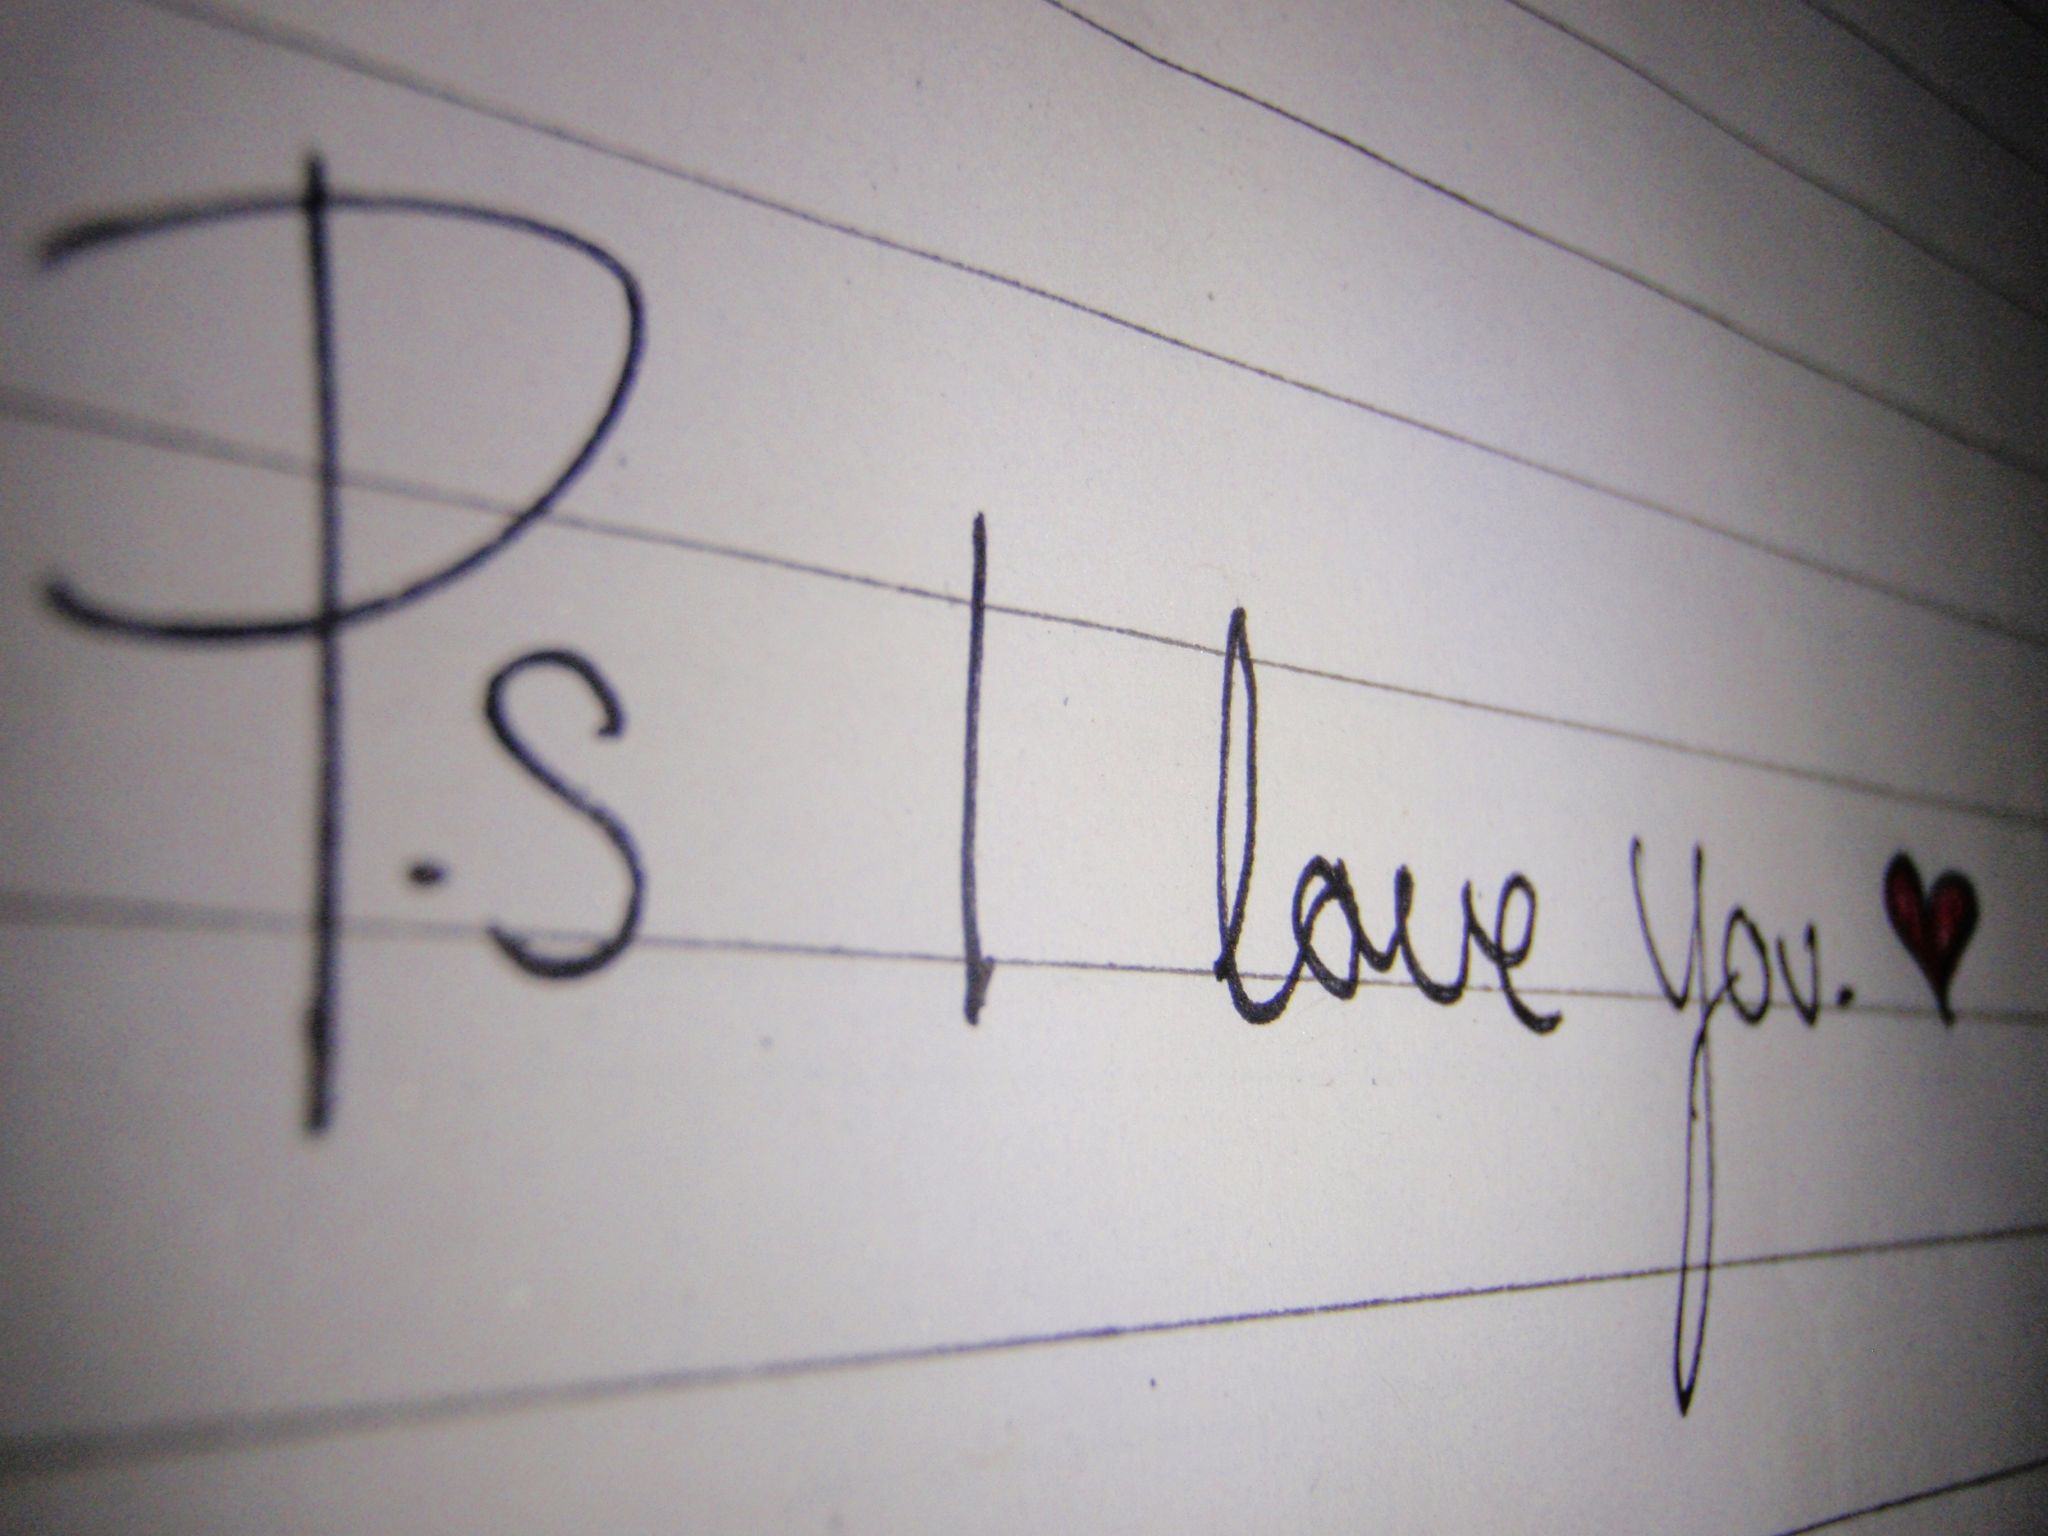 P.s I love you.